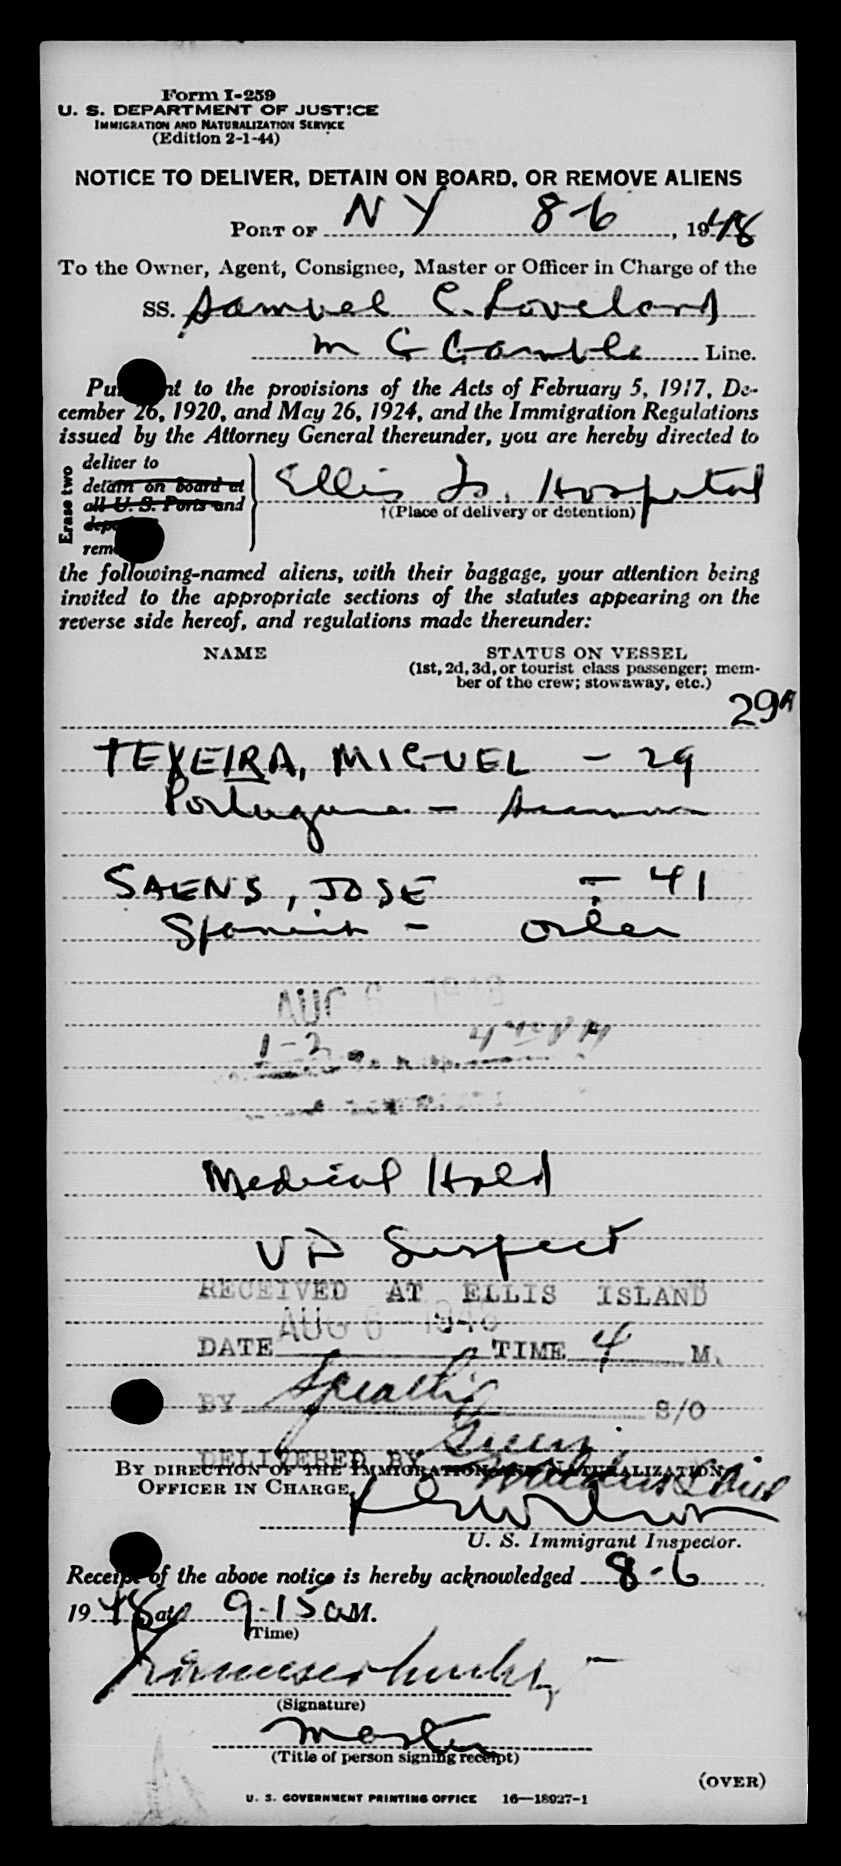 Form I-259
U. S. DEPARTMENT OF JUSTICE
IMMIGRATION AND NATURALIZATION SERVICE
(Edition 2-1-44)
NOTICE TO DELIVER, DETAIN ON BOARD, OR REMOVE ALIENS
PORT OF NY 8-6, 1948
To the Owner, Agent, Consignee, Master or Officer in Charge of the
SS. Samuel C. Loveland
McGamble Line.
Pu nt to the provisions of the Acts of February 5, 1917, De-
cember 26, 1920, and May 26, 1924, and the Immigration Regulations
issued by the Attorney General thereunder, you are hereby directed to
Erase two
deliver to
detain on board at
all U. S. Ports and
depo
rem
Ellis Is. Hospital
†(Place of delivery or detention)
the following-named aliens, with their baggage, your attention being
invited to the appropriate sections of the statutes appearing on the
reverse side hereof, and regulations made thereunder:
NAME STATUS ON VESSEL
(1st, 2d, 3d, or tourist class passenger; mem-
ber of the crew; stowaway, etc.)
29A
TEXEIRA, MIGUEL - 29
Portuguese - Seaman
SAENS, JOSE - 41
Spanish - Oiler
AUG 6 1948
1-2
Medical Hold
VD Suspect
RECEIVED AT ELLIS ISLAND
AUG 6 - 1948
DATE TIME 4 M.
BY S/O
DELIVERED BY
BY DIRECTION OF THE IMMIGRATION AND NATURALIZATION
OFFICER IN CHARGE,
U. S. Immigrant Inspector.
Receipt of the above notice is hereby acknowledged 8-6
1948 at 9-15 a M.
(Time)
(Signature)
Master
(Title of person signing receipt)
(OVER)
U. S. GOVERNMENT PRINTING OFFICE 16—18927-1